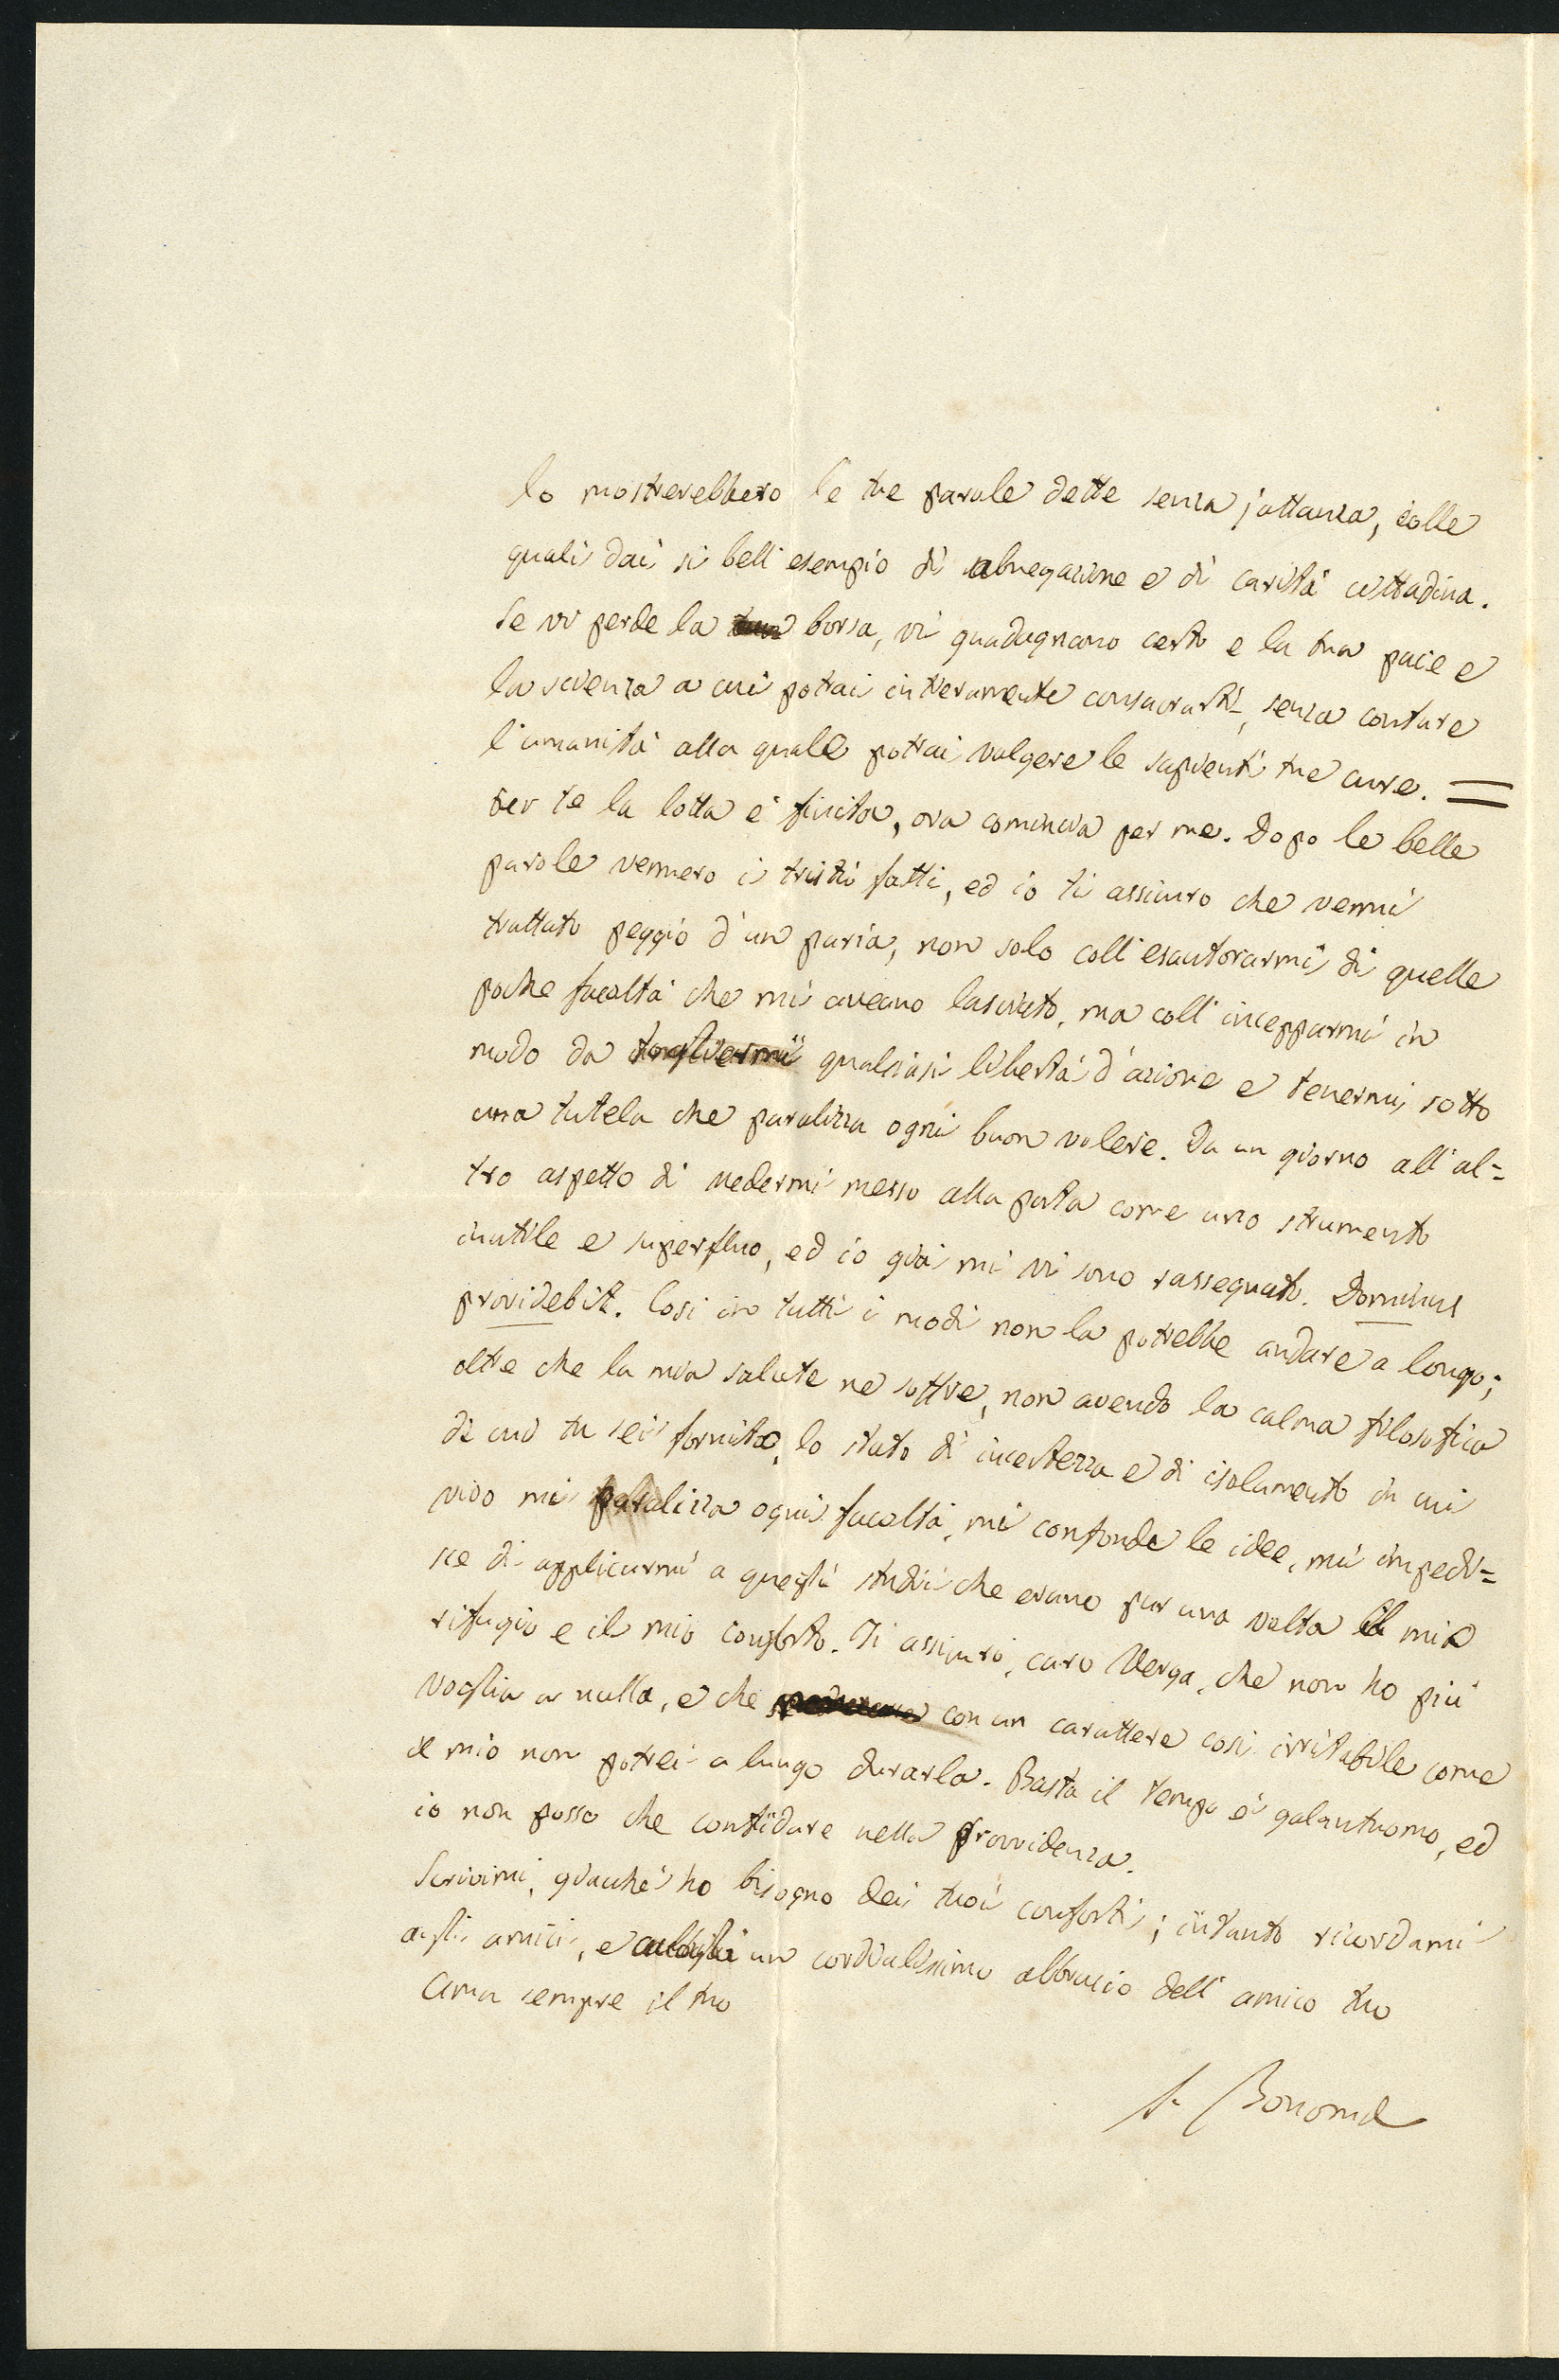 lo mostrerebbero le tue parole dette senza jattanza, colle
quali dai sì bell'esempio di abnegazione e di carità cittadina.
Se vi perde la borsa, vi guadagnano certo e la tua pace e
la scienza a cui potrai interamente consacrarti, senza contare
l'umanità alla quale potrai volgere le sapienti tue cure. =
Per te la lotta è finita, ora comincia per me. Dopo le belle
parole vennero i tristi fatti, ed io ti assicuro che venni
trattato peggio d'un paria, non solo coll'esautorarmi di quelle
poche facoltà che mi aveano lasciato, ma coll'incepparmi in
modo da togliermi qualsiasi libertà d'azione e tenermi sotto
una tutela che paralizza ogni buon volere. Da un giorno all'al=
tro aspetto di vedermi messo alla porta come uno strumento
inutile e superfluo, ed io già mi vi sono rassegnato. Dominus
providebit. Così in tutti i modi non la potrebbe andare a lungo;
oltre che la mia salute ne soffre, non avendo la calma filosofica
di cui tu sei fornito, lo stato di incertezza e di isolamento in cui
vivo mi paralizza ogni facoltà, mi confonde le idee, mi impedi=
sce di applicarmi a quegli studii che erano pur una volta il mio
rifugio e il mio conforto. Ti assicuro, caro Verga, che non ho più
voglia a nulla, e che con un carattere così irritabile come
il mio non potrei a lungo durarla. Basta il tempo è galantuomo, ed
io non posso che confidare nella provvidenza.
Scrivimi, giacchè ho bisogno dei tuoi conforti; intanto ricordami
agli amici, e accogli un cordialissimo abbraccio dell'amico tuo
Ama sempre il tuo
S. Bonomi